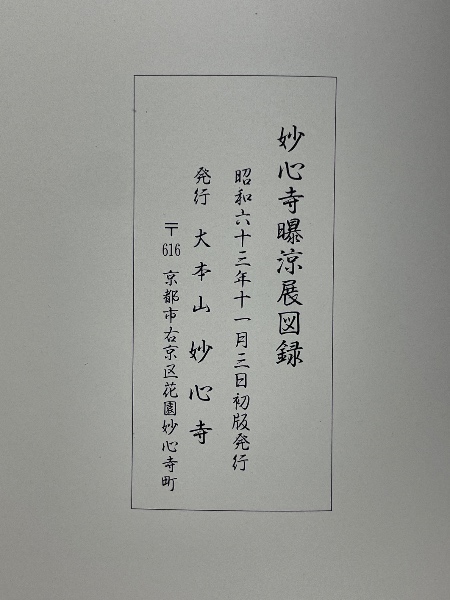 妙心寺曝涼展図録
昭和六十三年十一月三日初版発行
発行 大本山 妙心寺
〒616 京都市右京区花園妙心寺町